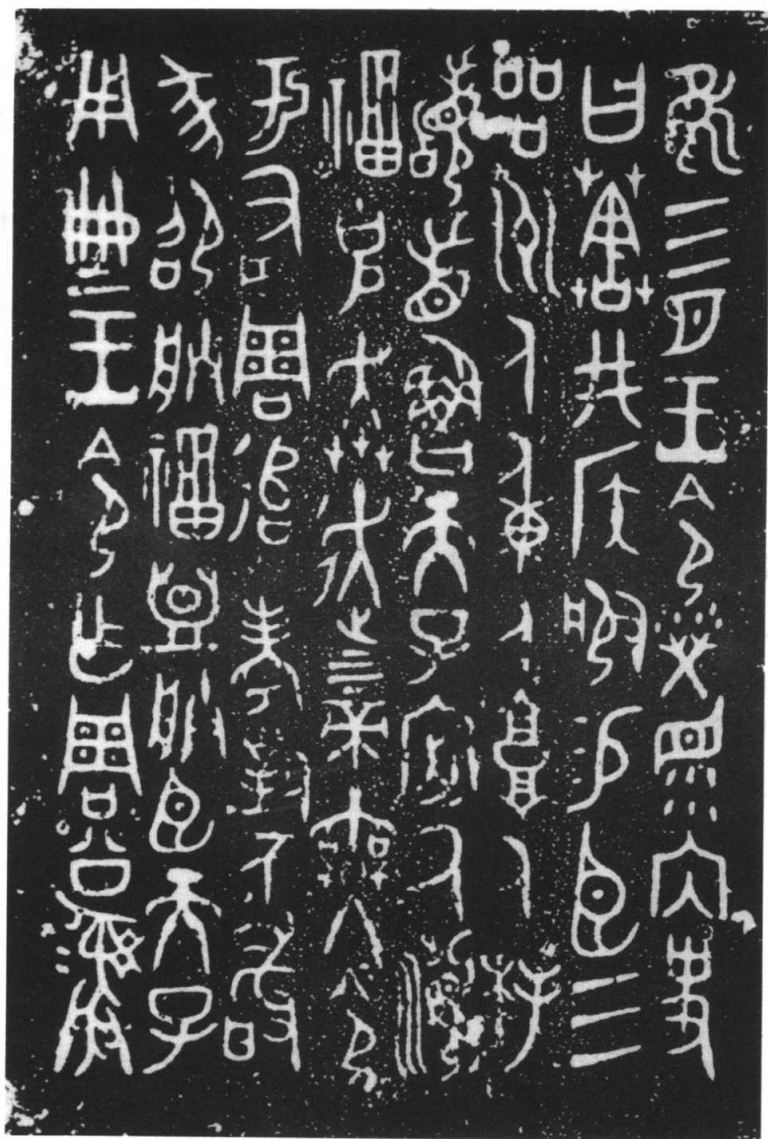 隹三月王令榮眔内史
曰䓊井侯服易臣三
品州人重人庸人拜
稽首魯天子𡧛厥瀕
福克奔走上下帝無冬令
于有周追考對不敢
㒸卲朕福盟朕臣天子
用典王令乍周公彝